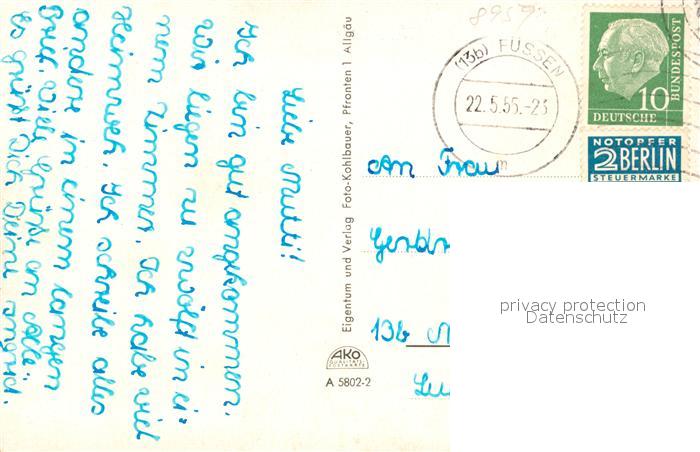 Liebe Mutti!
Ich bin gut angekommen.
Wir liegen zu zwölft in ei=
nem Zimmer. Ich habe viel
Heimweh. Ich schreibe alles
andere in einem langen
Brief. Viele Grüße an alle.
es grüßt Dich Deine Ingrid.
Eigentum und Verlag Foto-Kohlbauer, Pfronten 1 Allgäu
AKO
A 5802-2
8957
(13b) FÜSSEN
22.5.55.-23
m
10
DEUTSCHE
BUNDESPOST
NOTOPFER
2 BERLIN
STEUERMARKE
An Frau
13b
privacy protection
Datenschutz